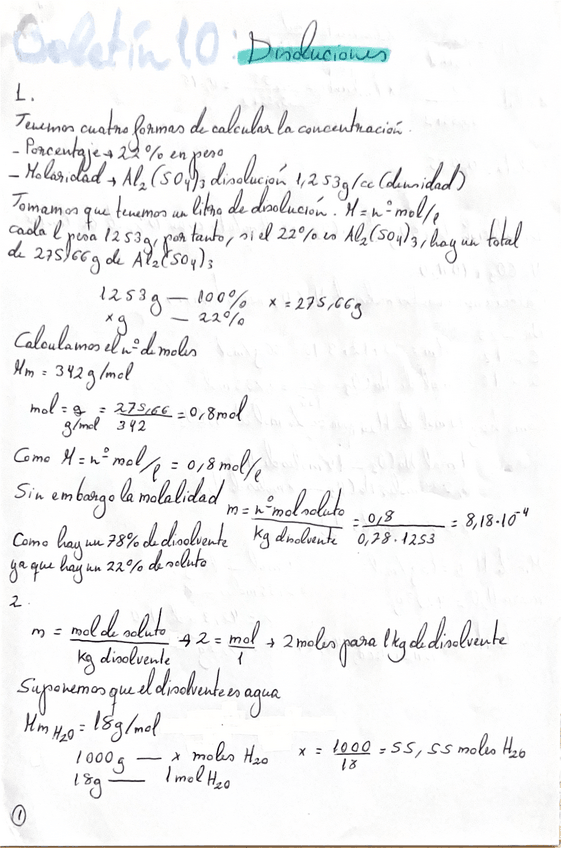 Boletín 10 Disoluciones
1.
Tenemos cuatro formas de calcular la concentración.
- Porcentaje → 22% en peso
- Molaridad → Al₂(SO₄)₃ disolución 1,253g/cc (densidad)
Tomamos que tenemos un litro de disolución. M = nº mol/ℓ
cada ℓ pesa 1253g, por tanto, si el 22% es Al₂(SO₄)₃, hay un total
de 275,66g de Al₂(SO₄)₃
1253g — 100% x = 275,66g
xg — 22%
Calculamos el nº de moles
Mm = 342 g/mol
mol = g / g/mol = 275,66 / 342 = 0,8mol
Como M = nº mol/ℓ = 0,8 mol/ℓ
Sin embargo la molalidad m = nº mol soluto / kg disolvente = 0,8 / 0,78·1253 = 8,18·10⁻⁴
Como hay un 78% de disolvente
ya que hay un 22% de soluto
2.
m = mol de soluto / kg disolvente → 2 = mol / 1 → 2 moles para 1kg de disolvente
Suponemos que el disolvente es agua
Mm H₂O = 18g/mol
1000g — x moles H₂O x = 1000 / 18 = 55,55 moles H₂O
18g — 1mol H₂O
1